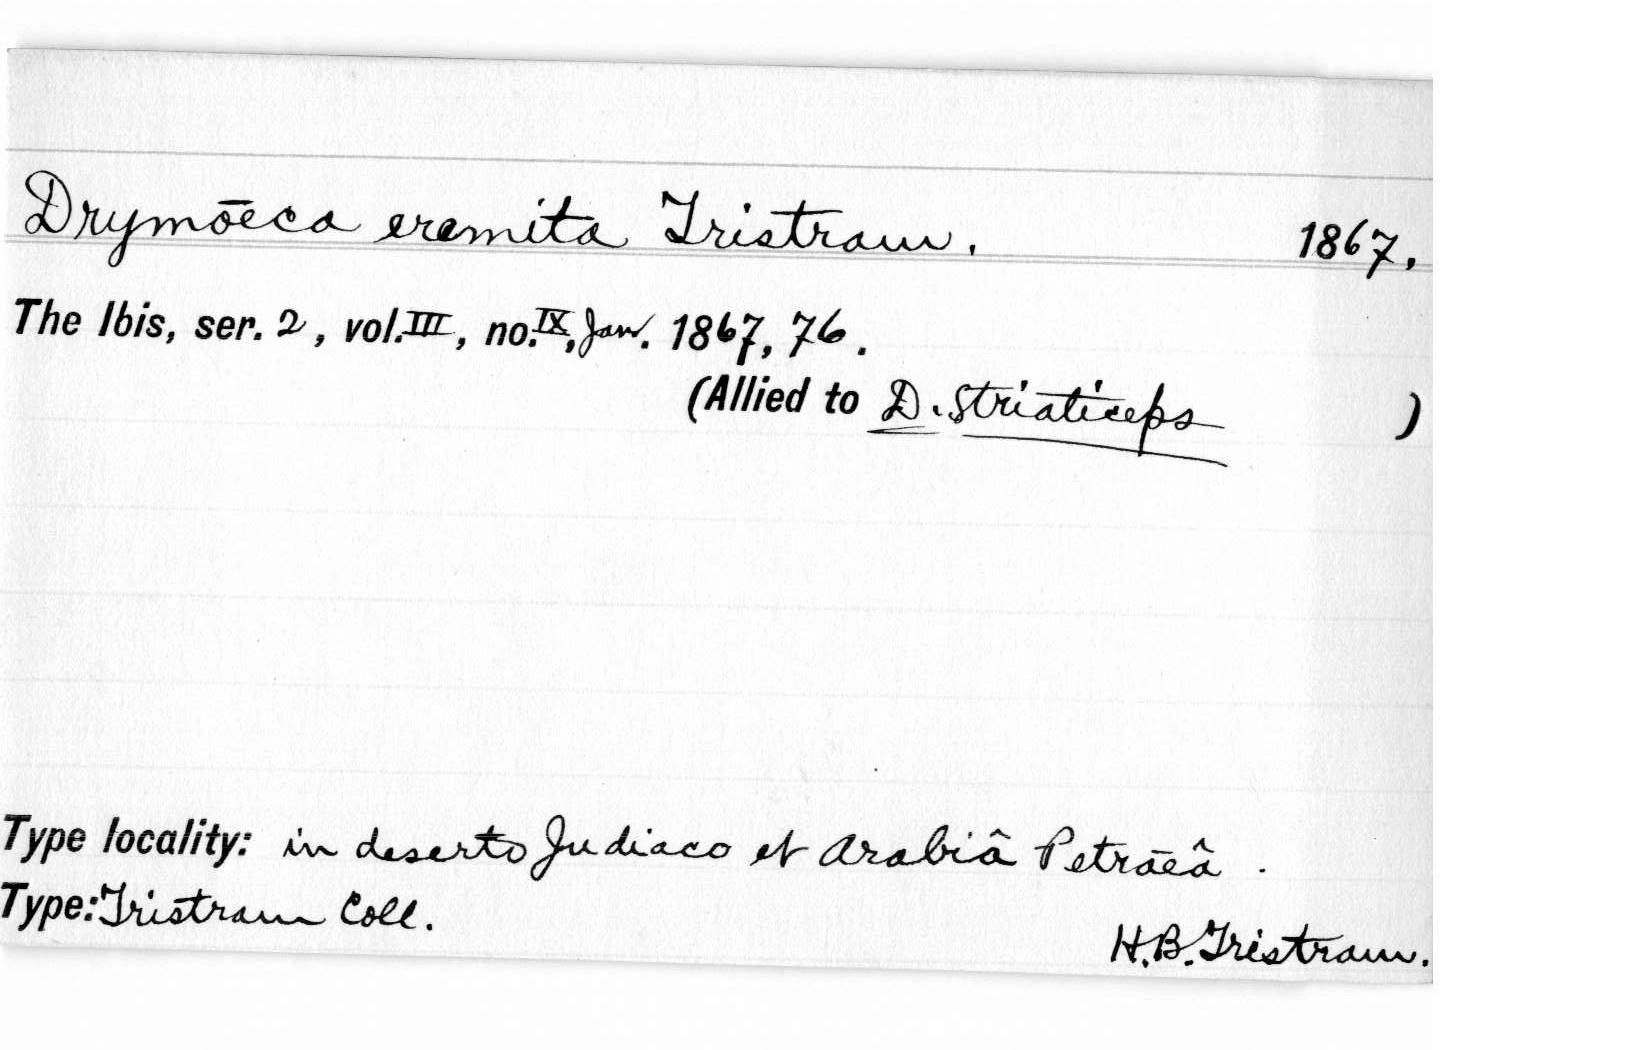 Drymōeca eremita Tristram. 1867.
The Ibis, ser. 2, vol. III, no. IX, Jan. 1867, 76.
(Allied to D. striaticeps )
Type locality: in deserto Judiaco et Arabiâ Petrāeâ.
Type: Tristram Coll.
H.B. Tristram.